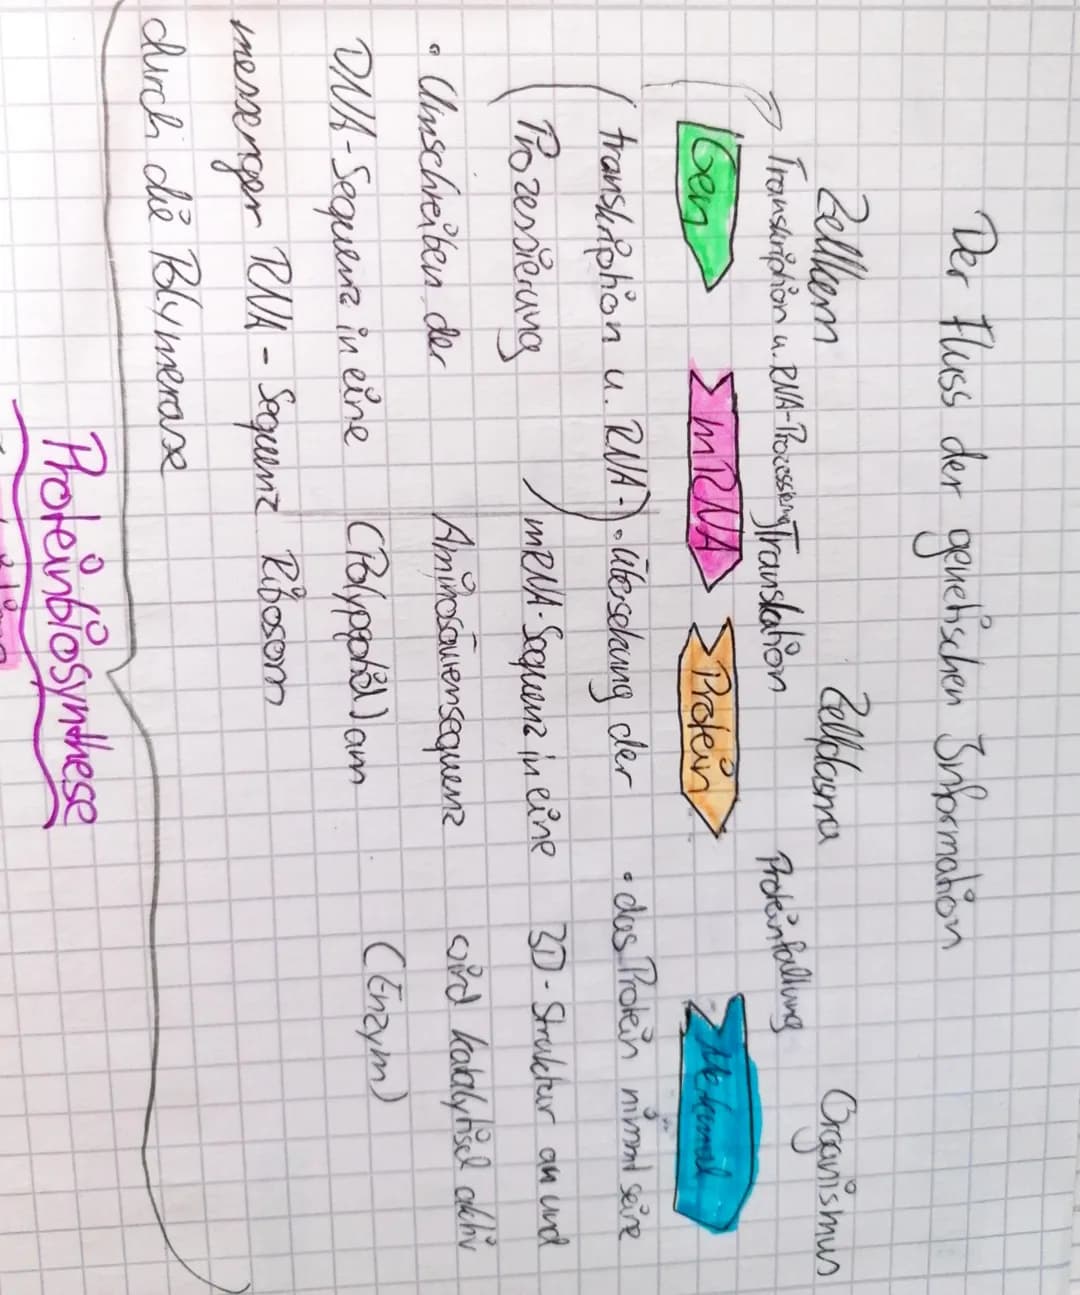 Der Fluss der genetischen Information
Zellkern Zellplasma Organismus
Transkription u. RNA-Processing Translation Proteinfaltung
Gen mRNA Protein Merkmal
(transkription u. RNA-
Prozessierung)
• Umschreiben der
DNA-Sequenz in eine
messenger RNA-Sequenz
durch die Polymerase
• Übersetzung der
mRNA-Sequenz in eine
Aminosäurensequenz
(Polypeptid) am
Ribosom
• das Protein nimmt seine
3D-Struktur an und
wird katalytisch aktiv
(Enzym)
Proteinbiosynthese